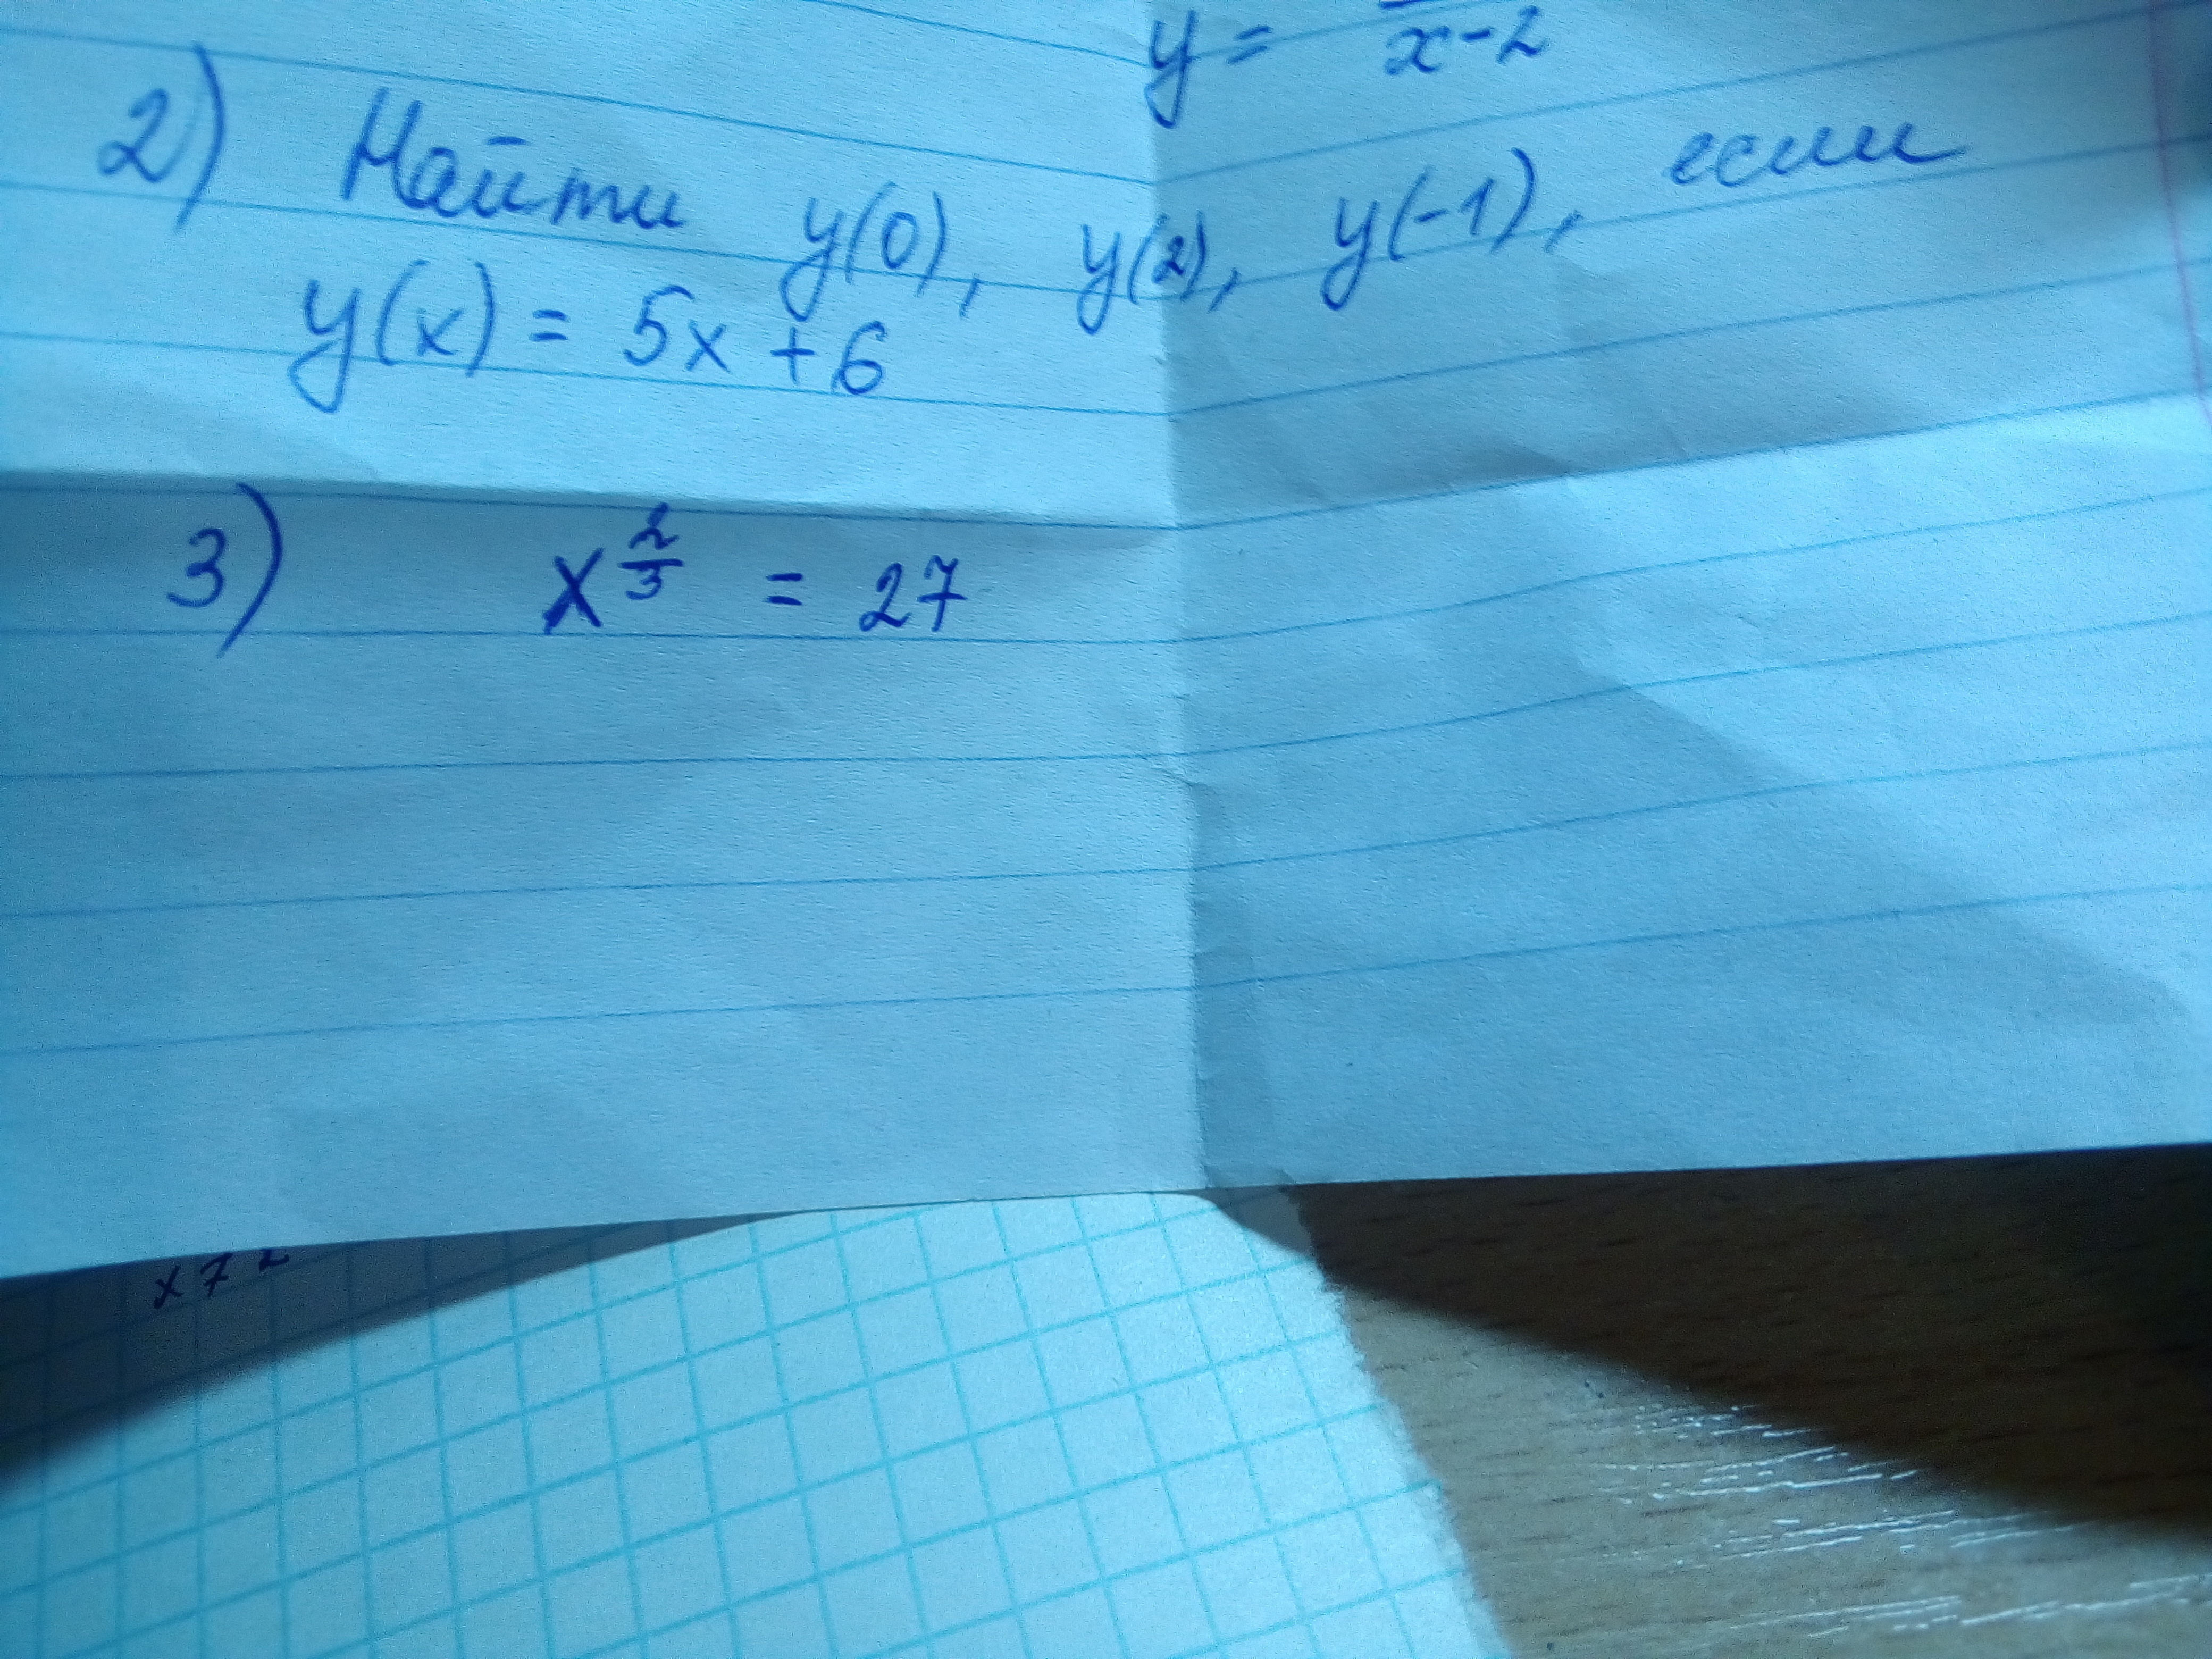 y = ‾/x-2
2) Найти y(0), y(2), y(-1), если
y(x) = 5x + 6
3) x^(2/3) = 27
x72